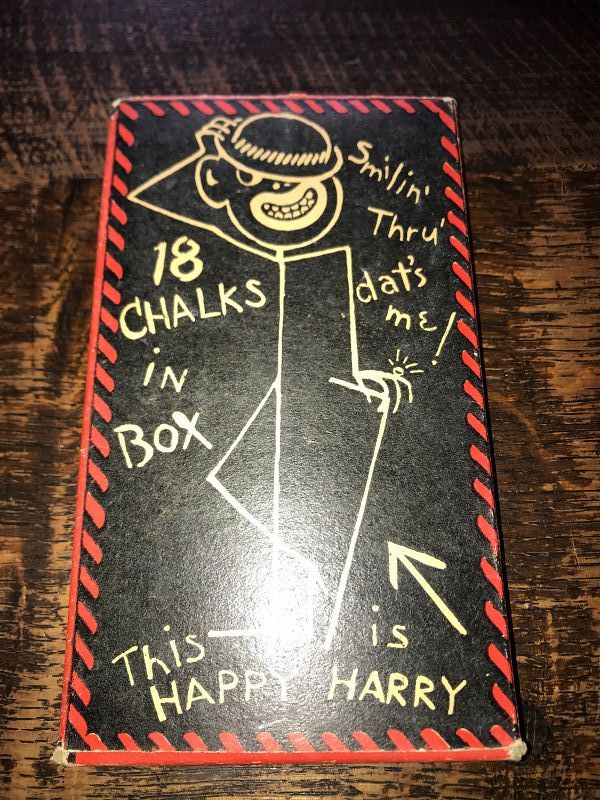 Smilin'
Thru'
dat's
me!
18
CHALKS
iN
BOX
This is
HAPPY HARRY